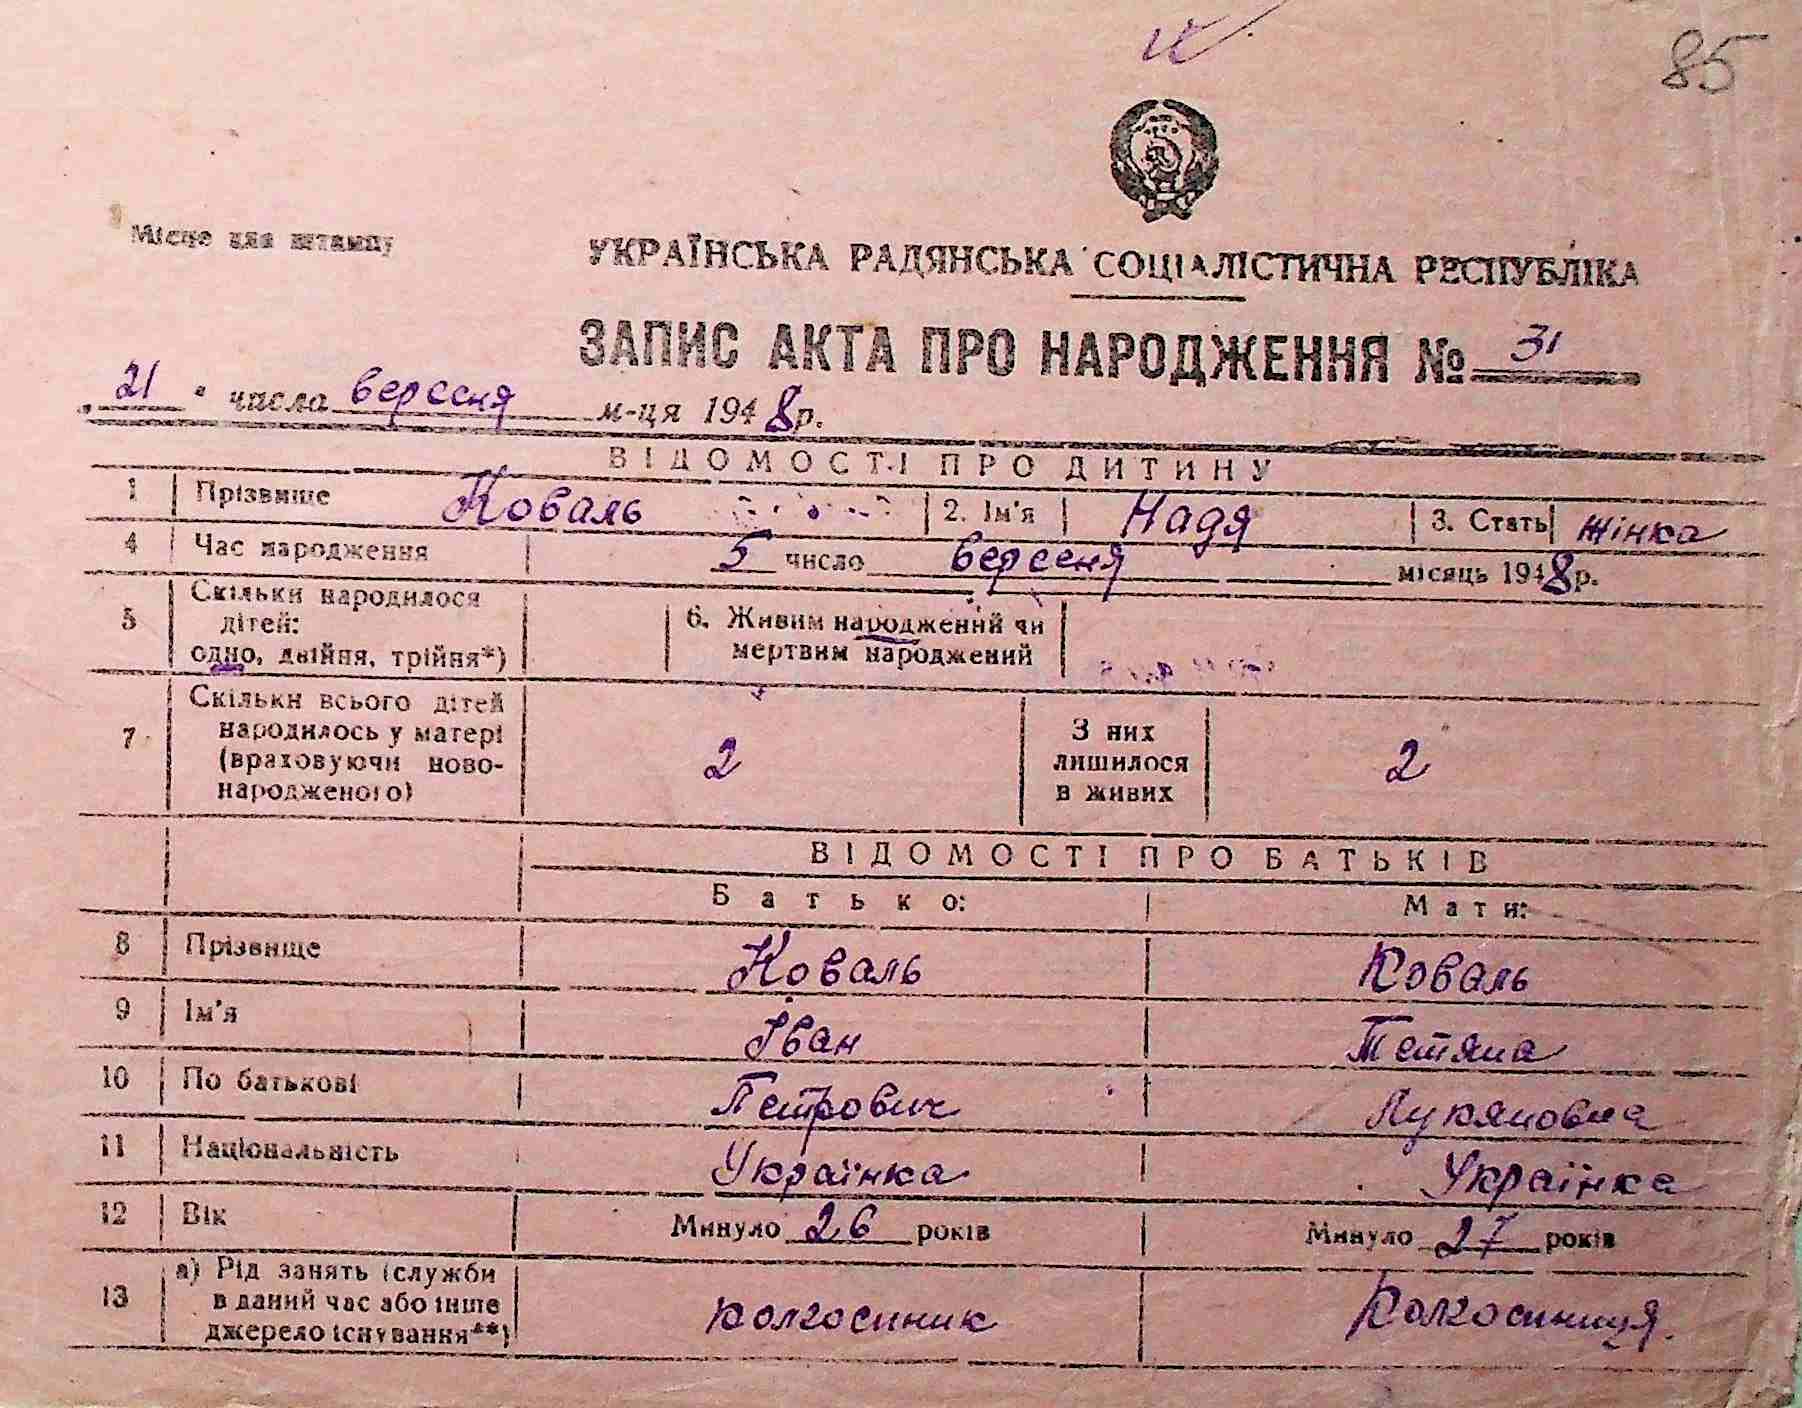 85
Місце для штампу
УКРАЇНСЬКА РАДЯНСЬКА СОЦІАЛІСТИЧНА РЕСПУБЛІКА
ЗАПИС АКТА ПРО НАРОДЖЕННЯ № 31
„21" числа вересня м-ця 1948 р.
ВІДОМОСТІ ПРО ДИТИНУ
1 Прізвище Коваль 2. Ім'я Надя 3. Стать жінка
4 Час народження 5 число вересня місяць 1948 р.
5 Скільки народилося дітей: одно, двійня, трійня*) 6. Живим народжений чи мертвим народжений
7 Скільки всього дітей народилось у матері (враховуючи ново-народженого) 2 З них лишилося в живих 2
ВІДОМОСТІ ПРО БАТЬКІВ
Батько: Мати:
8 Прізвище Коваль Коваль
9 Ім'я Іван Тетяна
10 По батькові Петрович Лукяновна
11 Національність Українка Українка
12 Вік Минуло 26 років Минуло 27 років
13 а) Рід занять (служби в даний час або інше джерело існування**) колгоспник Колгоспниця.